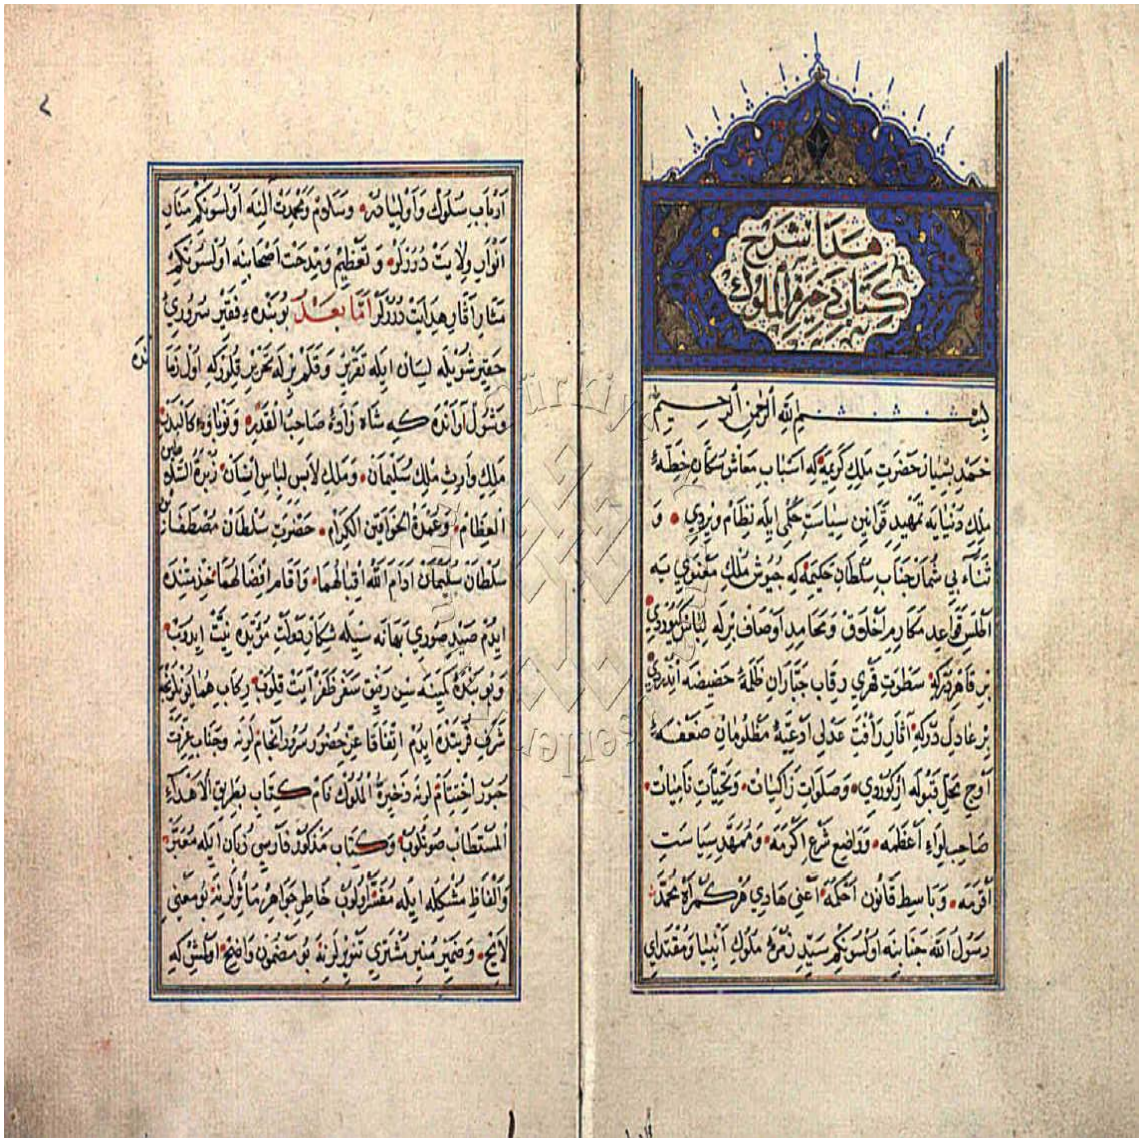 هذا شرح
كتاب ذخيرة الملوك
بسم الله الرحمن الرحيم
حمد بسيار حضرت ملك كريمه كه اسباب معاش سكان خطهٔ
ملك دنيايه تمهيد قوانين سياست حكمى ايله نظام ويردي و
ثناء بي شمار جناب سلطان حكيمه كه جيوش ملك معنوي يه
اطلس قواعد مكارم اخلاق ومحامد اوصاف برله لباس كيوردي
بر قاهردركه سطوت قهري رقاب جباران ظلمهٔ حضيضه ايندردي
بر عادل دركه آثار رأفت عدلى ادعيهٔ مظلومان ضعفهٔ
اوج محل قبوله ارگوردي وصلوات زاكيات وتحيات ناميات
صاحب لواء اعظمه وواضع شرع اكرمه وممهد سياست
اقومه وباسط قانون احكمه اعني هادي هر گمراه محمد
رسول الله جنابنه اولسونكم سيد زمرهٔ ملوك انبيا ومقتداي
ارباب سلوك واولياضر وسلام ومحمدت آلنه اولسونكم منار
انوار ولايت دورلر و تعظيم ومدحت اصحابنه اولسونكم
مثار آثار هدايت دورلر اما بعد بو بندهء فقير سروري
حقير شويله لسان ايله تقرير وقلم برله تحرير قلوركه اول زما
وشول اوانده كه شاه زادهٔ صاحب القدر
ملك وارث ملك سليمان وملك لابس لباس انسان زبدة السلاطين
العظام وعمدة الخواقين الكرام حضرت سلطان مصطفى بن
سلطان سليمان ادام الله اقبالهما واقام افضالهما خدمتنده
ايدم صيد صوري بهانه سيله شكار دولت مؤبده نيت ايدوب
وبو بندهٔ كمينه سن رفيق سفر ظفر آيت قلوب ركاب همايونلرنه
شرف قربتده ايدم اتفاقا عز حضور سرور انجام لرنه وجناب عزت
حبور اختتام لرنه ذخيرة الملوك نام كتاب بطريق الاهداء
المستطاب صونلوب وكتاب مذكور فارسي زبان ايله معبر
والفاظ مشكله ايله مفسر اولوب خاطر جواهر مآثرلرنه بو معنى
لايح وضمير منير مشتري تنويرلرنه بو مضمون واضح اولمش كه